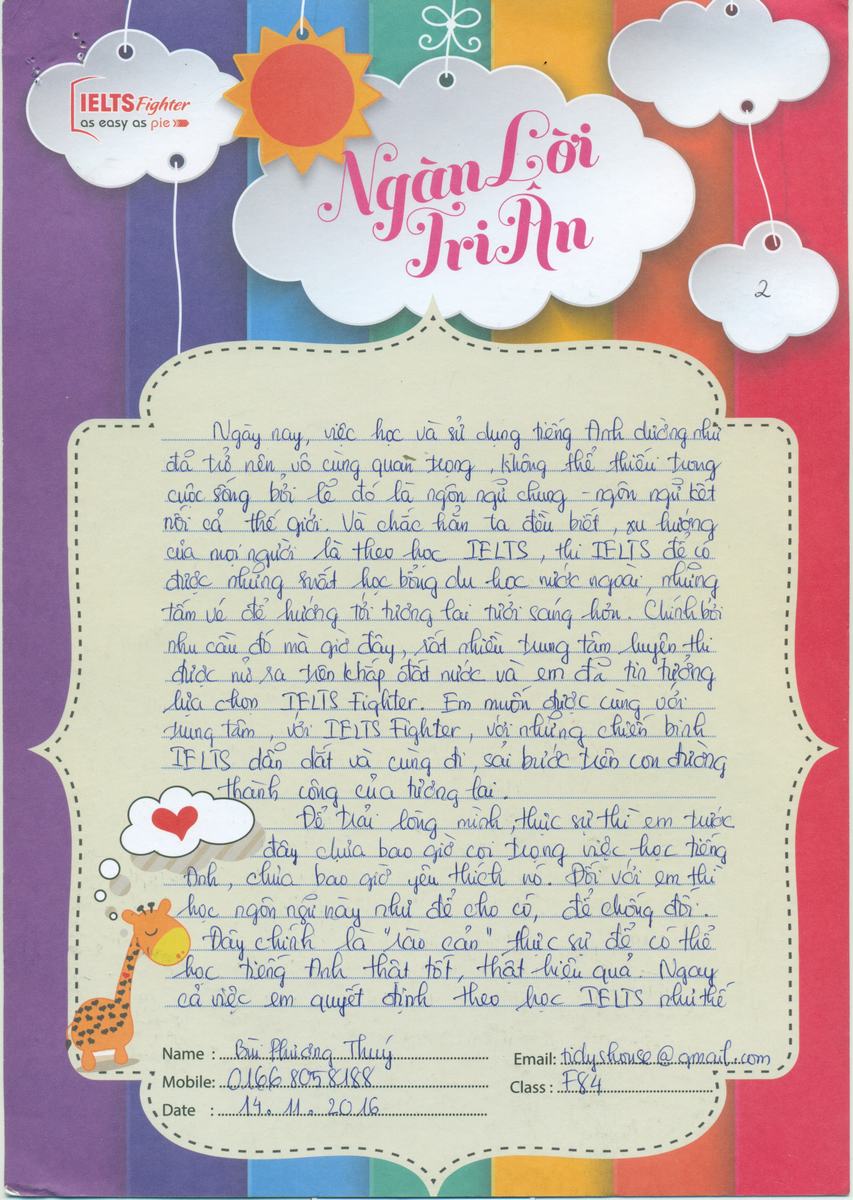 IELTS Fighter
as easy as pie
Ngàn Lời
Tri Ân
2
Ngày nay, việc học và sử dụng tiếng Anh dường như
đã trở nên vô cùng quan trọng, không thể thiếu trong
cuộc sống bởi lẽ đó là ngôn ngữ chung - ngôn ngữ kết
nối cả thế giới. Và chắc hẳn ta đều biết, xu hướng
của mọi người là theo học IELTS, thi IELTS để có
được những suất học bổng du học nước ngoài, những
tấm vé để hướng tới tương lai tươi sáng hơn. Chính bởi
nhu cầu đó mà giờ đây, rất nhiều trung tâm luyện thi
được mở ra trên khắp đất nước và em đã tin tưởng
lựa chọn IELTS Fighter. Em muốn được cùng với
trung tâm, với IELTS Fighter, với những chiến binh
IELTS dẫn dắt và cùng đi, sải bước trên con đường
thành công của tương lai.
Để trải lòng mình, thực sự thì em trước
đây chưa bao giờ coi trọng việc học tiếng
Anh, chưa bao giờ yêu thích nó. Đối với em thì
học ngôn ngữ này như để cho có, để chống đối.
Đây chính là "rào cản" thực sự để có thể
học tiếng Anh thật tốt, thật hiệu quả. Ngay
cả việc em quyết định theo học IELTS như thế
Name : Bùi Phương Thuý
Email: tidyshouse@gmail.com
Mobile: 0166 8058188
Class : F84
Date : 14.11.2016